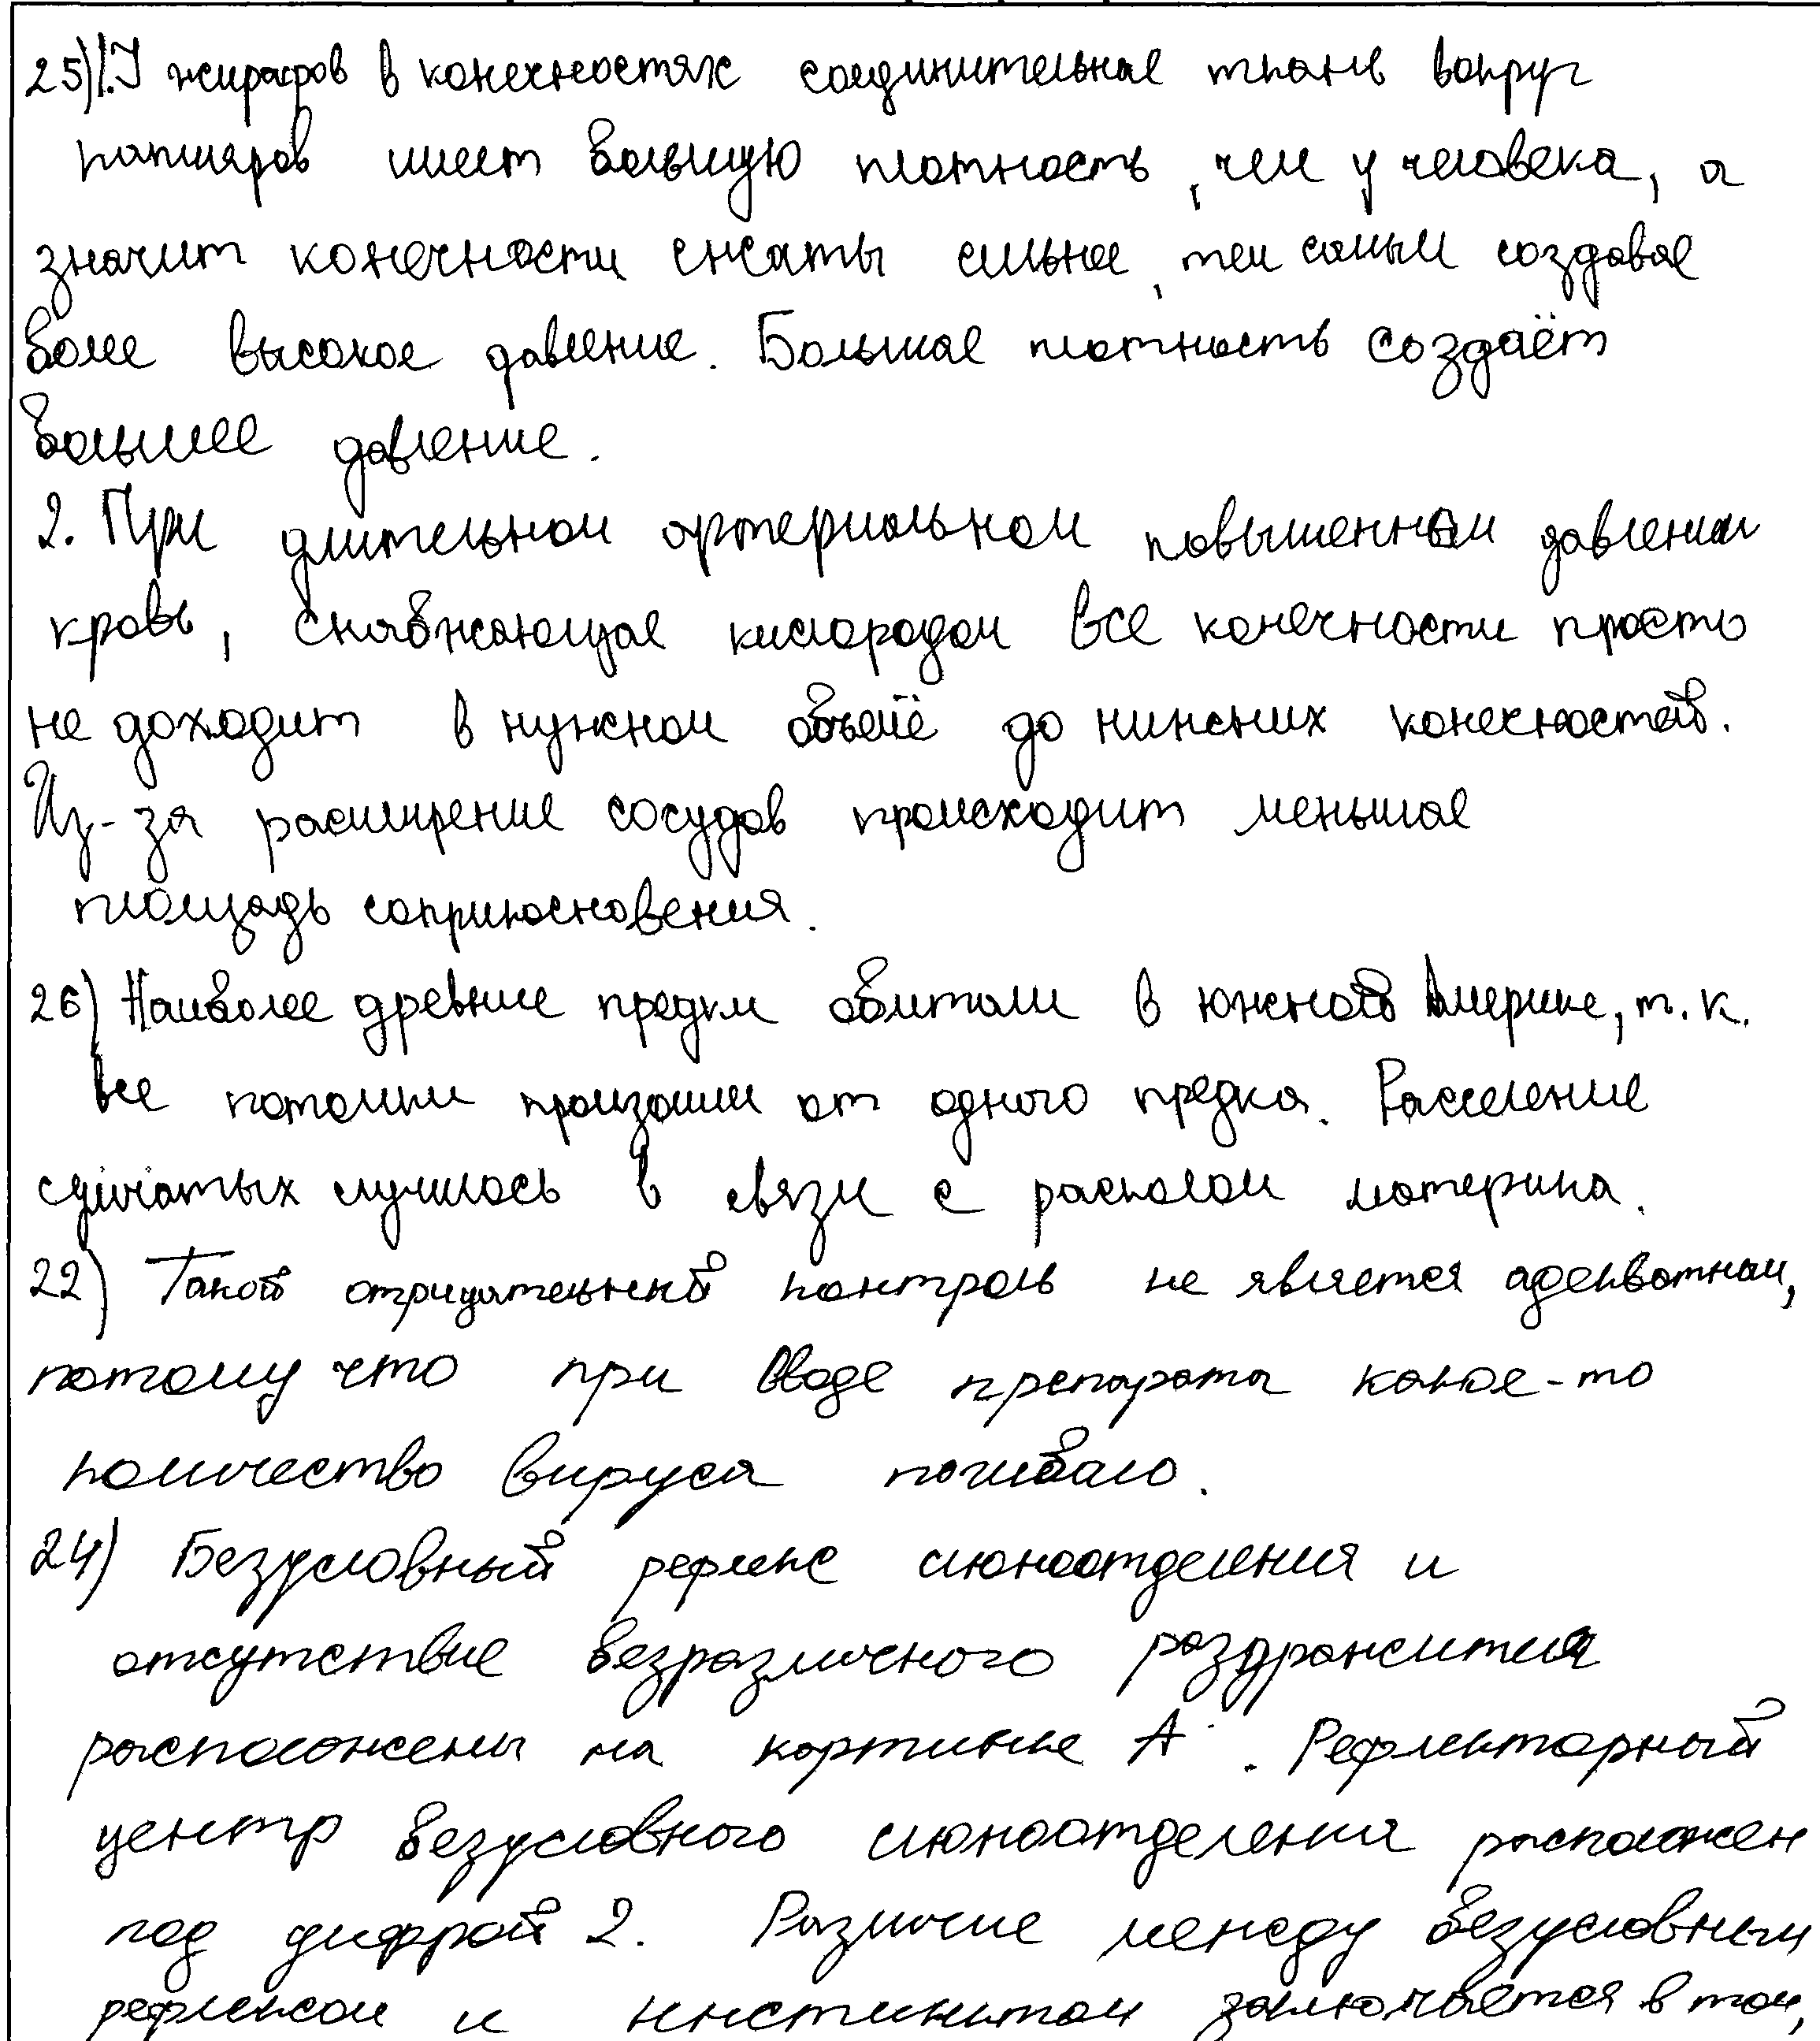 25) 1. У жирафов в конечностях соединительная ткань вокруг
капиляров имеет большую плотность, чем у человека, а
значит конечности сжаты сильнее, тем самым создавая
более высокое давление. Большая плотность создаёт
большее давление.
2. При длительном артериальном повышенном давлении
кровь, снабжающая кислородом все конечности просто
не доходит в нужном объёме до нижних конечностей.
Из-за расширение сосудов происходит меньшая
площадь соприкосновения.
26) Наиболее древние предки обитали в южной Америке, т.к.
все потомки произошли от одного предка. Расселение
сумчатых случилось в связи с расколом материка.
22) Такой отрицательный контроль не является адекватным,
потому что при вводе препарата какое-то
количество вируса погибало.
24) Безусловный рефлекс слюноотделения и
отсутствие безразличного раздражителя
расположены на картинке А. Рефлекторный
центр безусловного слюноотделения расположен
под цифрой 2. Различие между безусловным
рефлексом и инстинктом заключается в том,